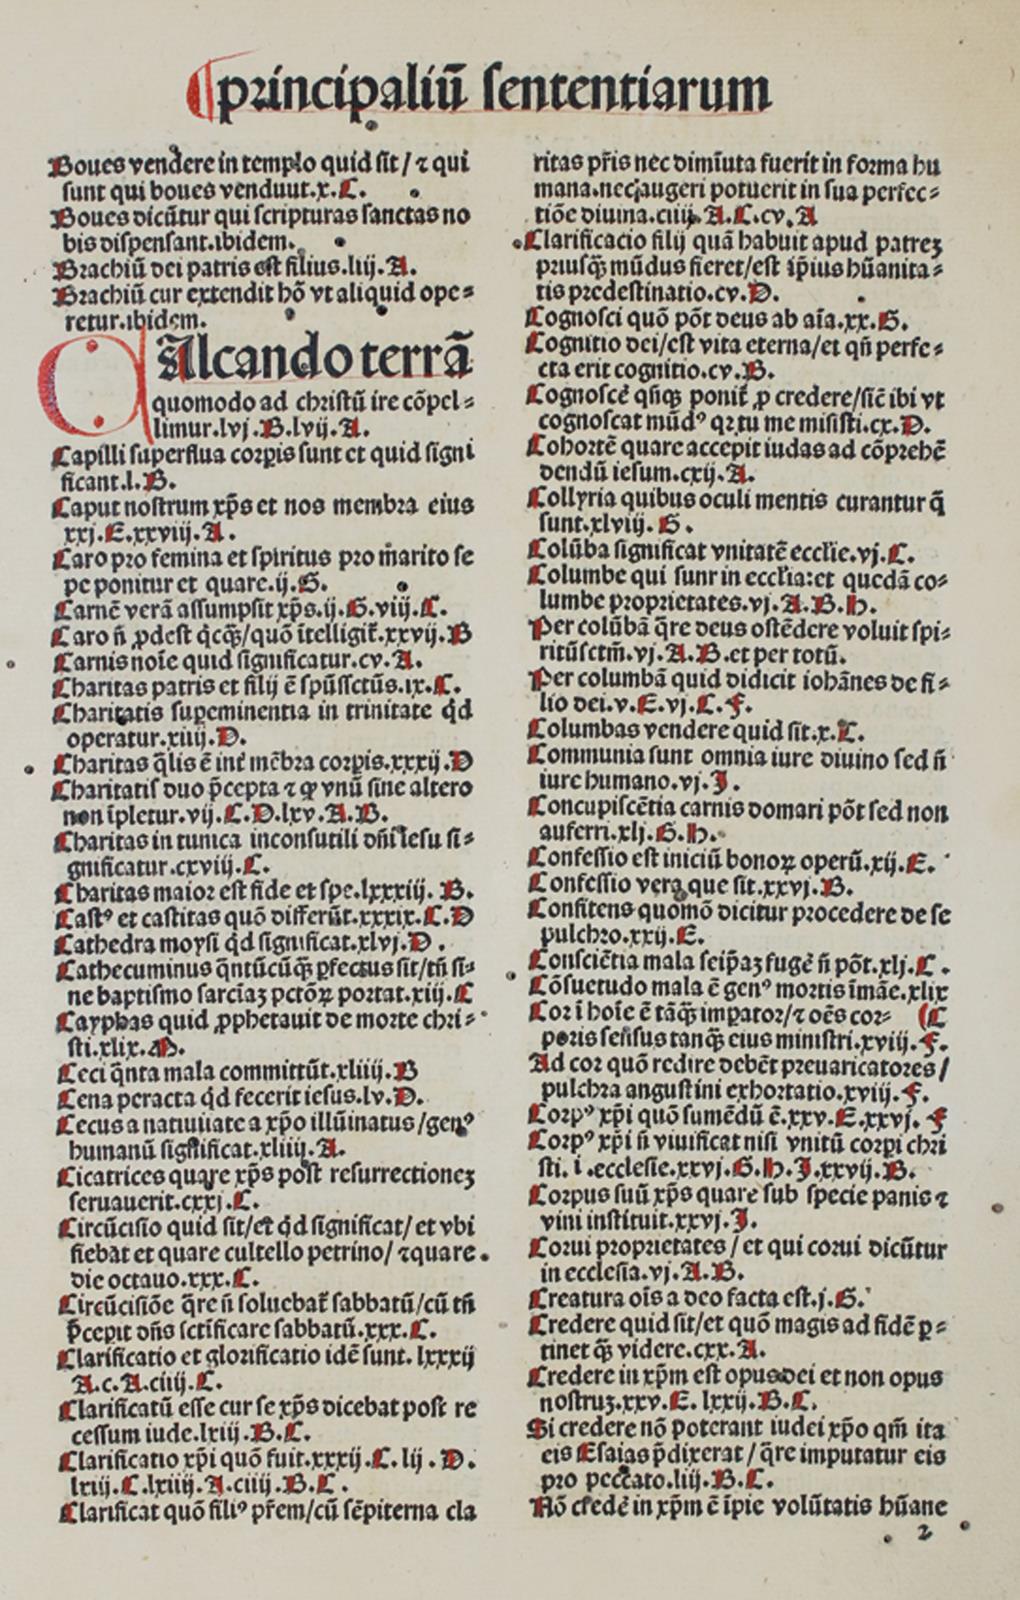 principaliū sententiarum
Boues vendere in templo quid sit/ ⁊ qui
sunt qui boues venduut.x.C.
Boues dicūtur qui scripturas sanctas no
bis dispensant.ibidem.
Brachiū dei patris est filius.liij.A.
Brachiū cur extendit hō vt aliquid ope⸗
retur.ibidem.
CAlcando terrā
quomodo ad christū ire cōpel⸗
limur.lvj.B.lvij.A.
Capilli superflua corꝑis sunt et quid signi
ficant.l.B.
Caput nostrum xp̄s et nos membra eius
xxj.E.xxviij.A.
Caro pro femina et spiritus pro marito se
pe ponitur et quare.ij.G.
Carnē verā assumpsit xp̄s.ij.G.viij.C.
Caro n̄ ꝓdest q̇cq̄ꝫ/quō ītelligit̄.xxvij.B
Carnis noīe quid significatur.cv.A.
Charitas patris et filij ē spūssctūs.ix.C.
Charitatis suꝑeminentia in trinitate q̇d
operatur.xiiij.D.
Charitas q̄lis ē int̄ mēbra corꝑis.xxxij.D
Charitatis duo p̄cepta ⁊ ꝙ vnū sine altero
non īpletur.vij.C.D.lxv.A.B.
Charitas in tunica inconsutili dn̄i Iesu si⸗
gnificatur.cxviij.C.
Charitas maior est fide et spe.lxxxiij. B.
Castꝰ et castitas quō differūt.xxxix.C.D
Cathedra moysi q̇d significat.xlvj.D .
Cathecuminus q̄ntūcūq̄ꝫ ꝑfectus sit/tn̄ si⸗
ne baptismo sarcīaꝫ pctōꝝ portat.xiij.C
Cayphas quid ꝓphetauit de morte chri⸗
sti.xlix.M.
Ceci q̄nta mala committūt.xliiij.B
Cena peracta q̇d fecerit iesus.lv.D.
Cecus a natiuitate a xp̄o illūinatus/genꝰ
humanū significat.xliiij.A.
Cicatrices quare xp̄s post resurrectioneꝫ
seruauerit.cxxj.C.
Circūcisio quid sit/et q̇d significat/ et vbi
fiebat et quare cultello petrino/ ⁊quare
die octauo.xxx.C.
Circūcisiōe q̄re n̄ soluebat̄ sabbatū/cū tn̄
p̄cepit dn̄s sctificare sabbatū.xxx.C.
Clarificatio et glorificatio idē sunt. lxxxij
A.c.A.ciiij.C.
Clarificatū esse cur se xp̄s dicebat post re
cessum iude.lxiij.B.C.
Clarificatio xp̄i quō fuit.xxxij.C. lij . D.
lxiij.C.lxiiij.A.ciiij.B.C.
Clarificat quō filiꝰ pr̄em/cū sēpiterna cla
ritas pr̄is nec dimiuta fuerit in forma hu
mana.nec augeri potuerit in sua perfec⸗
tiōe diuina.ciiij.A.C.cv.A
Clarificacio filij quā habuit apud patreꝫ
priusq̄ꝫ mūdus fieret/est ip̄ius hūanita⸗
tis predestinatio.cv.D.
Cognosci quō pōt deus ab aīa.xx.G.
Cognitio dei/est vita eterna/et qn̄ perfe⸗
cta erit cognitio.cv.B.
Cognoscē qn̄qꝫ ponit̄ ꝓ credere/sic̄ ibi vt
cognoscat mūdꝰ qꝛ tu me misisti.cx.D.
Cohortē quare accepit iudas ad cōprehē
dendū iesum.cxij.A.
Collyria quibus oculi mentis curantur q̄
sunt.xlviij.G.
Colūba significat vnitatē ecclie.vj.C.
Columbe qui sunr in ecclia:et quedā co⸗
lumbe proprietates.vj.A.B.H.
Per colūbā q̄re deus ostēdere voluit spi⸗
ritūsctm̄.vj.A.B.et per totū.
Per columbā quid didicit iohānes de fi⸗
lio dei.v.E.vj.C.F.
Columbas vendere quid sit.x.C.
Communia sunt omnia iure diuino sed n̄
iure humano.vj.J.
Concupiscētia carnis domari pōt sed non
auferri.xlj.G.H.
Confessio est iniciū bonoꝝ operū.xij.E.
Confessio vera que sit.xxvj.B.
Confitens quomō dicitur procedere de se
pulchro.xxij.E.
Consciētia mala seip̄aꝫ fugē n̄ pōt.xlj.C.
Cōsuetudo mala ē genꝰ mortis īmāe.xlix
Cor ī hoīe ē tāq̄ꝫ imꝑator/⁊ oēs cor⸗ (C
poris sensus tanq̄ꝫ eius ministri.xviij.F.
Ad cor quō redire debēt preuaricatores/
pulchra angustini exhortatio.xviij.F.
Corpꝰ xp̄i quō sumēdū ē.xxv.E.xxvj. F
Corpꝰ xp̄i n̄ viuificat nisi vnitū corꝑi chri
sti. i .ecclesie.xxvj.G.H.J.xxvij.B.
Corpus suū xp̄s quare sub specie panis ⁊
vini instituit.xxvj.J.
Corui proprietates/et qui corui dicūtur
in ecclesia.vj.A.B.
Creatura oīs a deo facta est.j.G.
Credere quid sit/et quō magis ad fidē ꝑ⸗
tinet q̄ꝫ videre.cxx.A.
Credere in xp̄m est opus dei et non opus
nostruꝫ.xxv.E. lxxij.B.C.
Si credere nō poterant iudei xp̄o qm̄ ita
eis Esaias p̄dixerat/ q̄re imputatur eis
pro peccato.liij.B.C.
Nō credē in xp̄m ē īpie volūtatis hūane
2